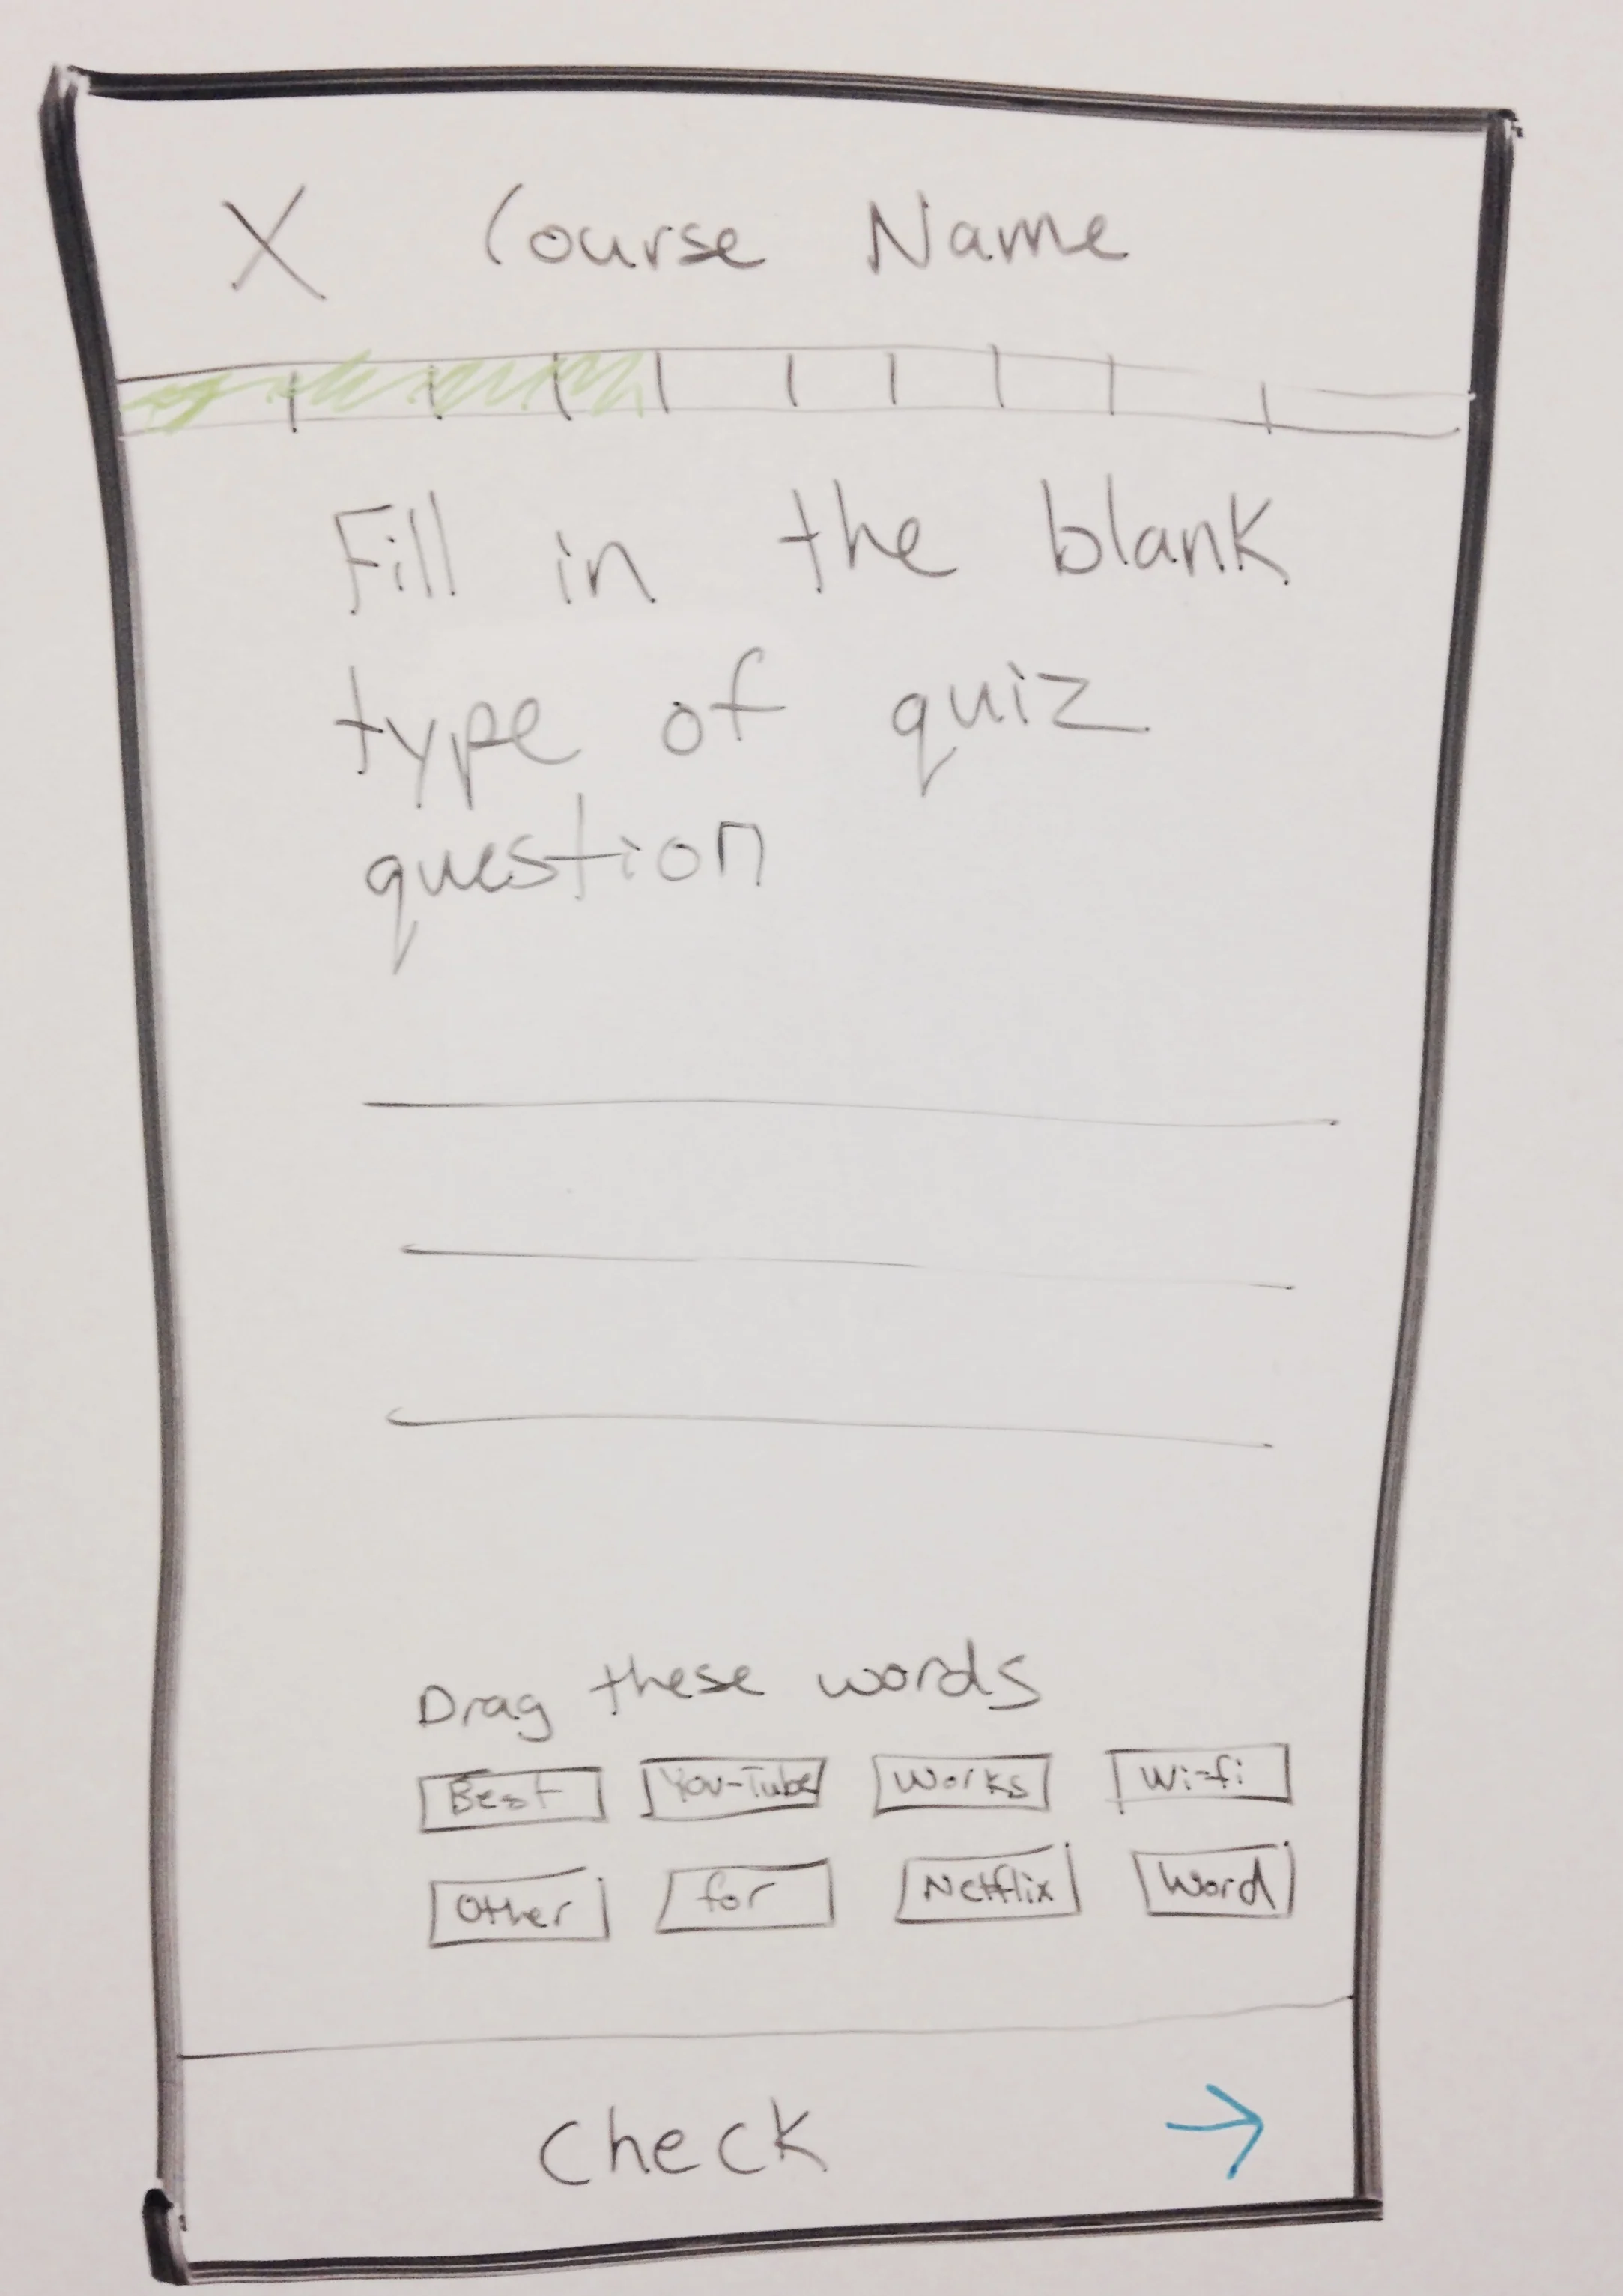 X Course Name
Fill in the blank
type of quiz
question
Drag these words
Best You-Tube Works Wi-fi
Other for Netflix Word
Check →